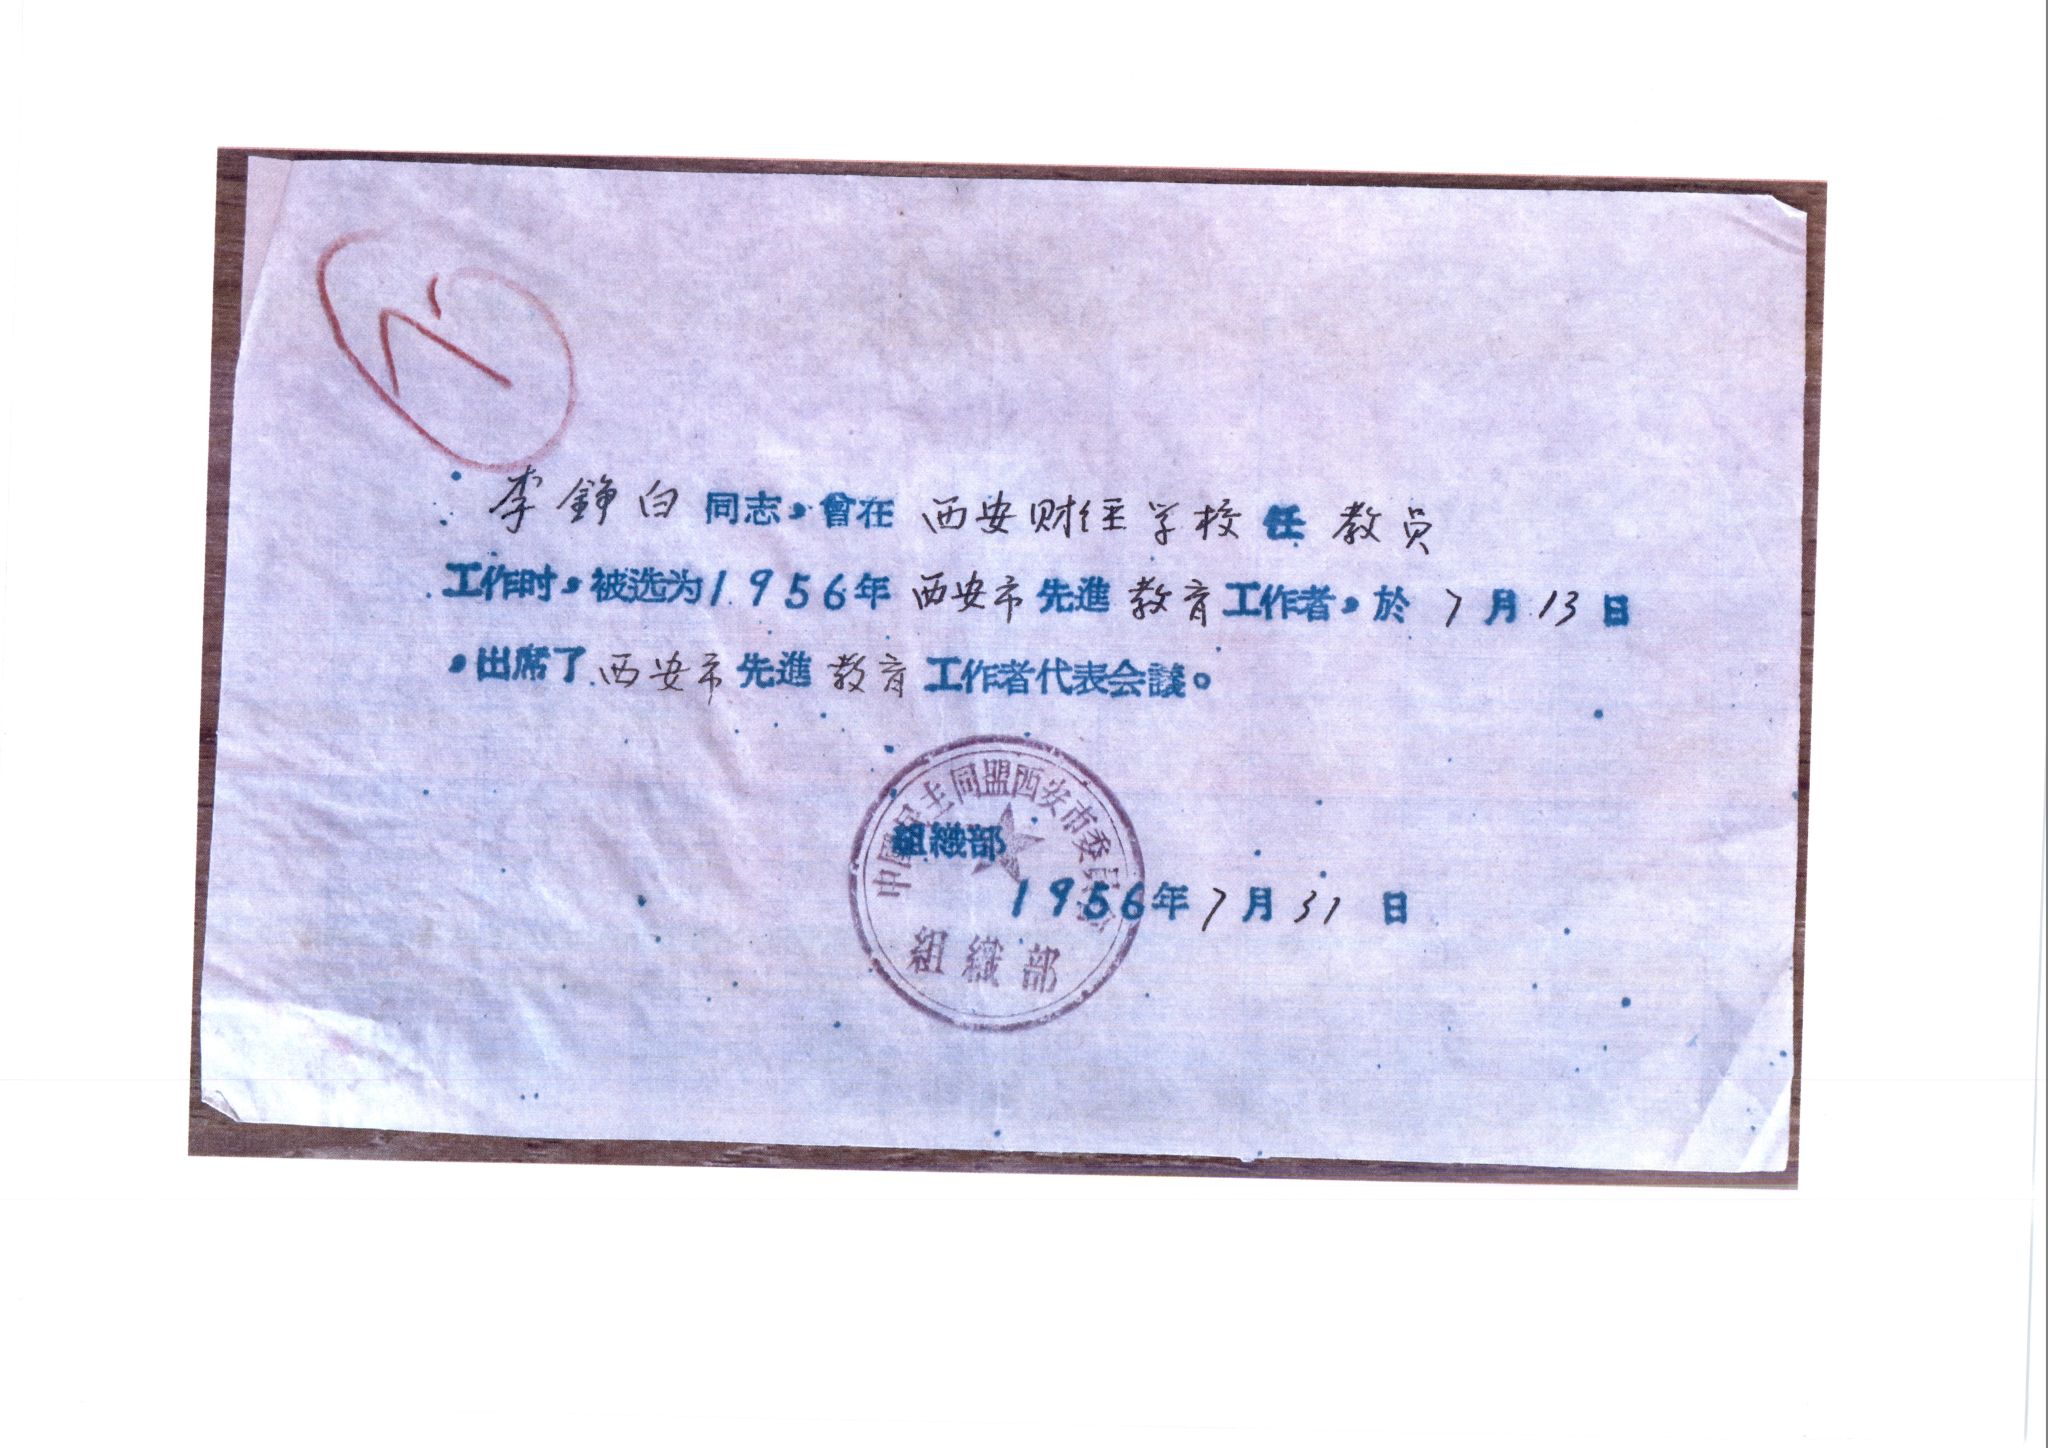 李錚白同志，曾在西安财经学校任教员
工作时，被选为1956年西安市先進教育工作者，於7月13日
，出席了西安市先進教育工作者代表会議。
中國民主同盟西安市委員会
組織部
組織部
1956年7月31日